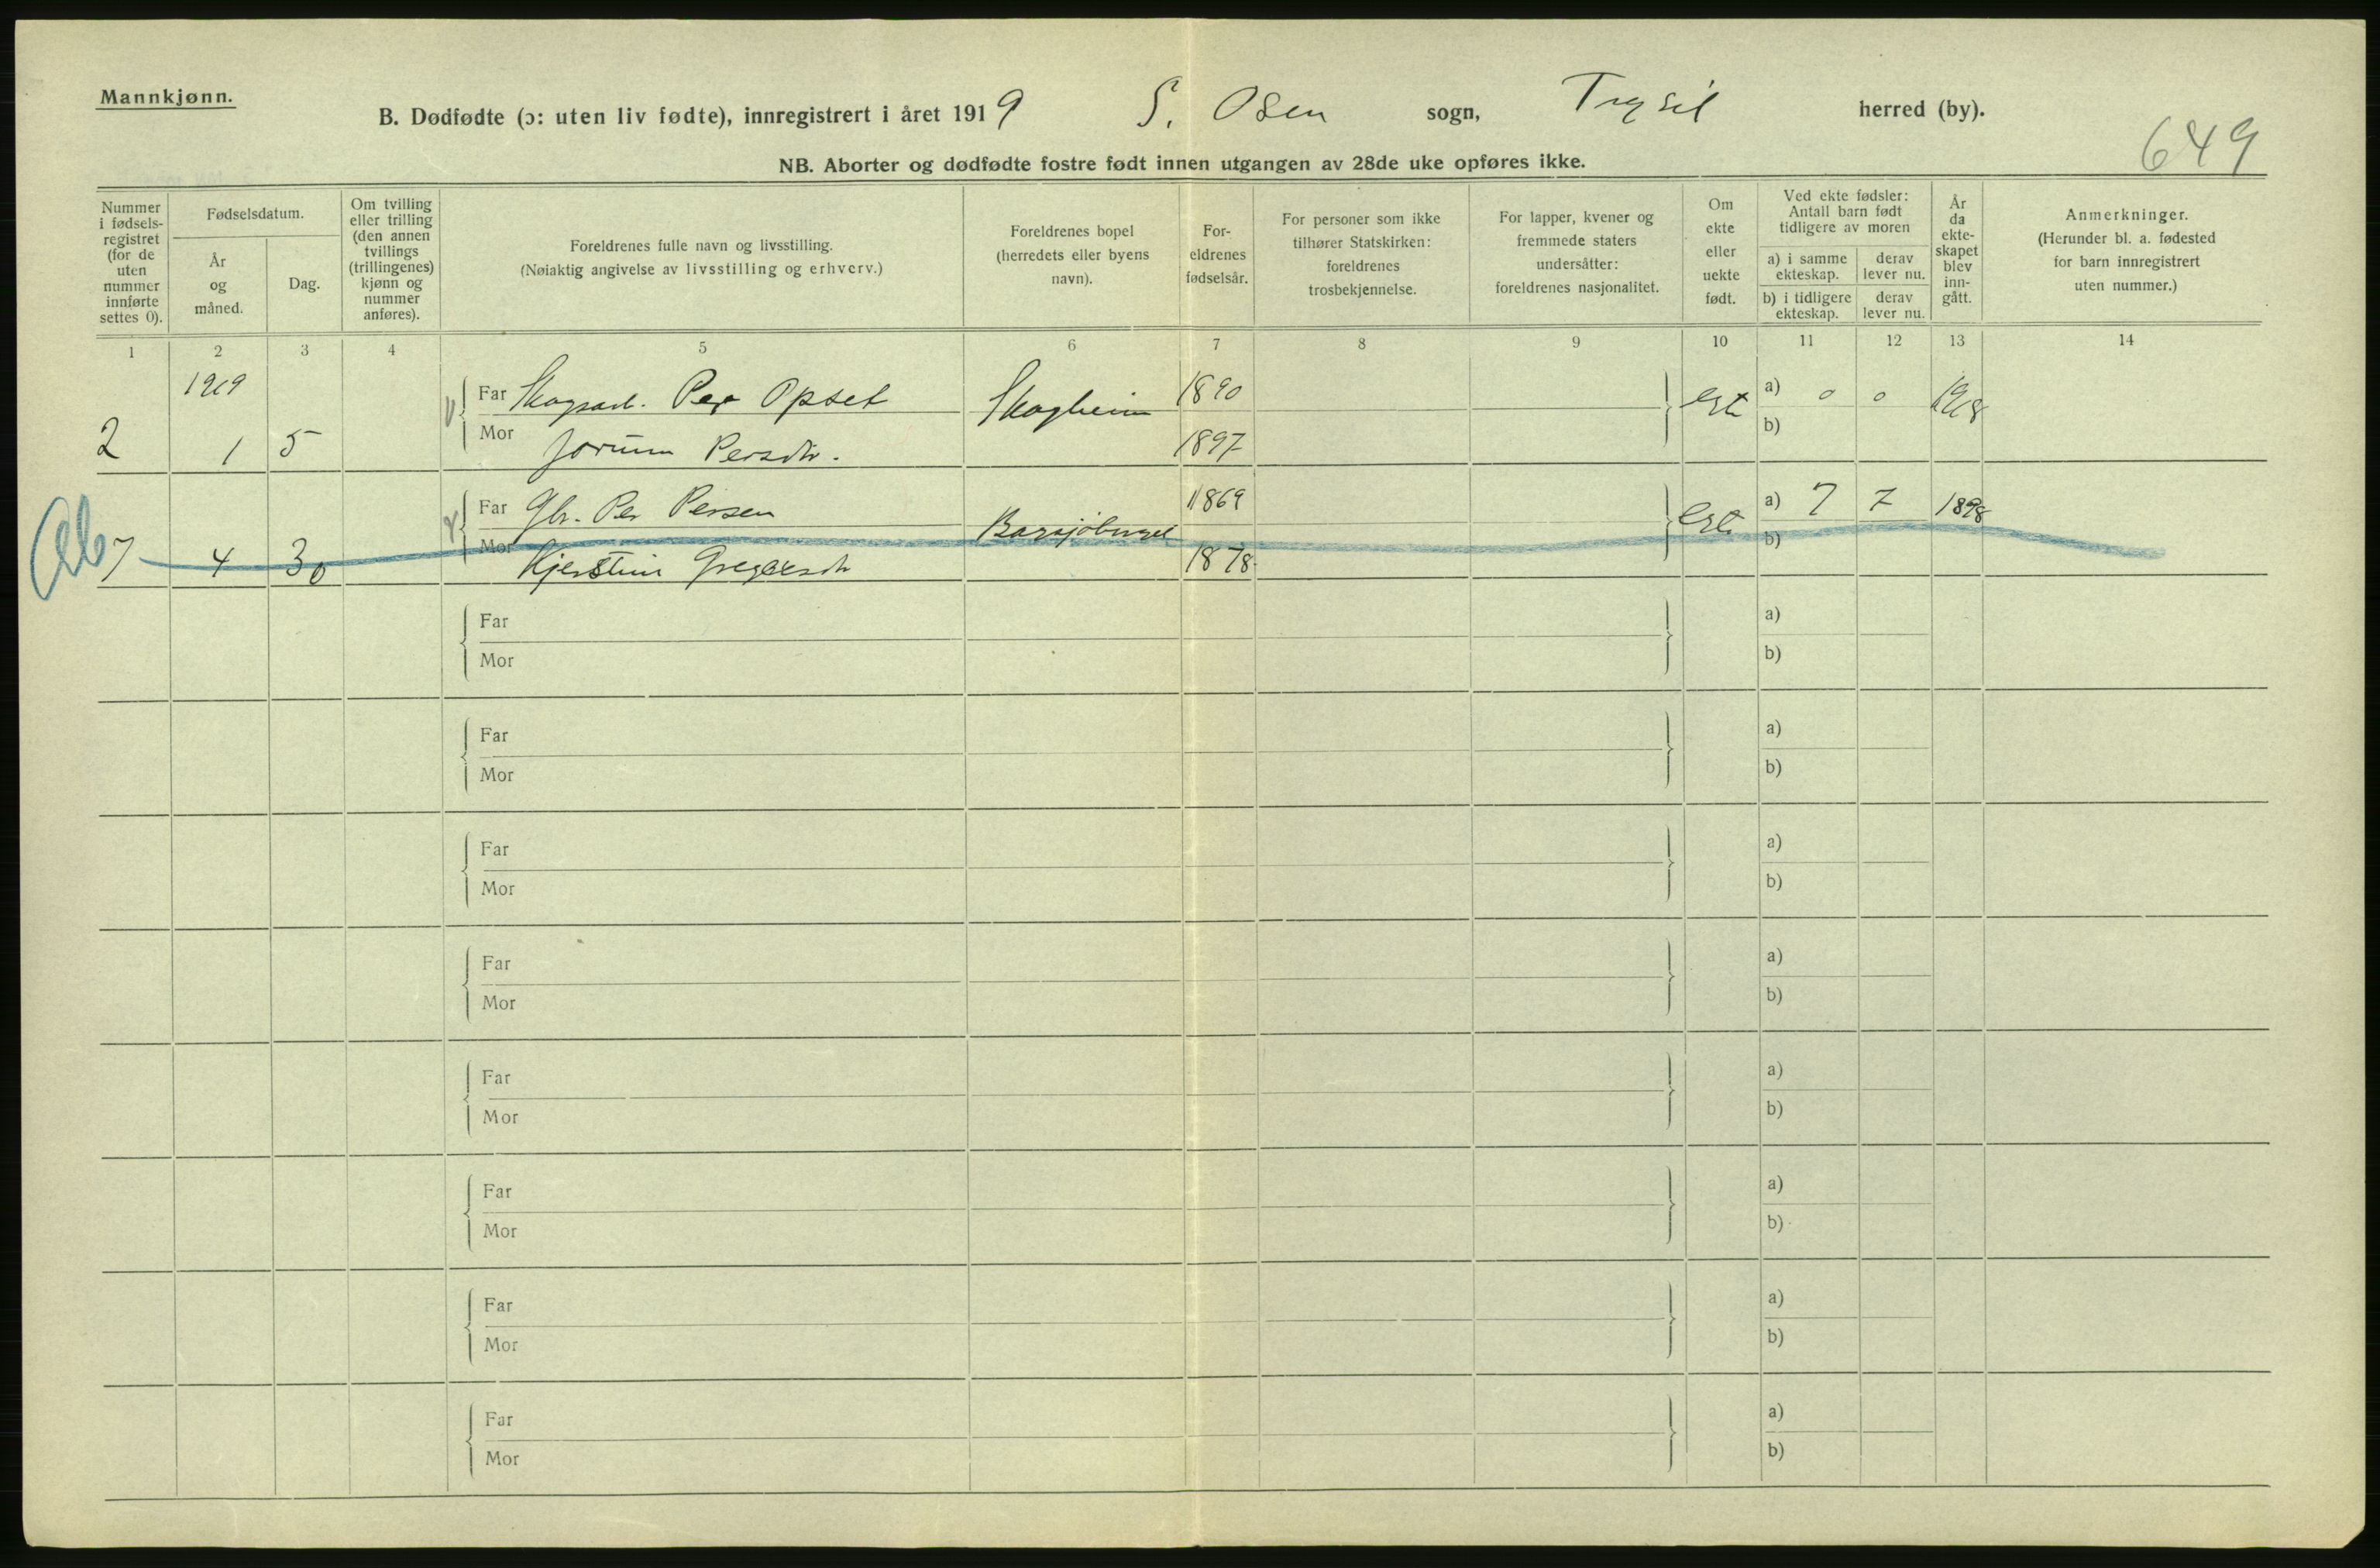 Mannkjønn.
B. Dødfødte (ɔ: uten liv fødte), innregistrert i året 1919 S. Osen sogn, Trysil herred (by).
649
NB. Aborter og dødfødte fostre født innen utgangen av 28de uke opføres ikke.
Nummer i fødsels-registret (for de uten nummer innførte settes 0).
Fødselsdatum.
År og måned.
Dag.
Om tvilling eller trilling (den annen tvillings (trillingenes) kjønn og nummer anføres).
Foreldrenes fulle navn og livsstilling.
(Nøiaktig angivelse av livsstilling og erhverv.)
Foreldrenes bopel (herredets eller byens navn).
For-eldrenes fødselsår.
For personer som ikke tilhører Statskirken: foreldrenes trosbekjennelse.
For lapper, kvener og fremmede staters undersåtter: foreldrenes nasjonalitet.
Om ekte eller uekte født.
Ved ekte fødsler: Antall barn født tidligere av moren
a) i samme ekteskap. derav lever nu.
b) i tidligere ekteskap. derav lever nu.
År da ekte-skapet blev inn-gått.
Anmerkninger.
(Herunder bl. a. fødested for barn innregistrert uten nummer.)
1 2 3 4 5 6 7 8 9 10 11 12 13 14
1919
Far Skogsarb. Per Opset Skogheim 1890 a) 0 0 1918
2 1 5 Mor Jorunn Persdtr. 1897 b)
Far Gbr. Per Persen 1869 a) 7 7 1898
7 4 30 Mor Kjerstine 1878 b)
Far a)
Mor b)
Far a)
Mor b)
Far a)
Mor b)
Far a)
Mor b)
Far a)
Mor b)
Far a)
Mor b)
Far a)
Mor b)
Far a)
Mor b)